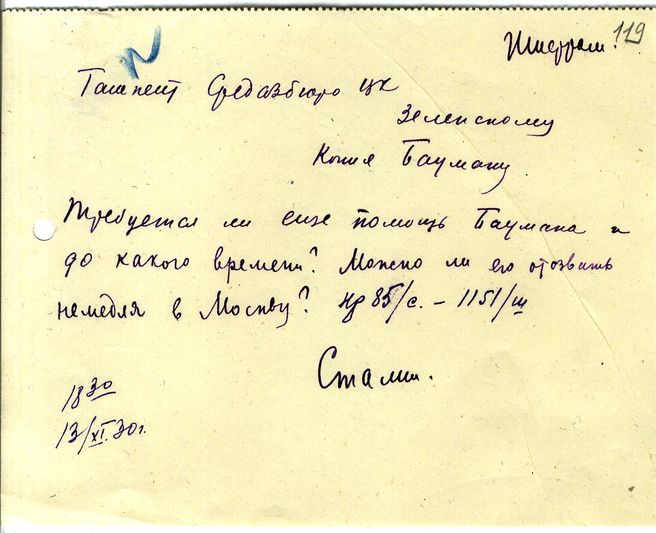 119
Шифром.
Ташкент Средазбюро ЦК
Зеленскому
Копия Бауману
Требуется ли еще помощь Баумана и
до какого времени? Можно ли его отозвать
немедля в Москву? Нр 85/с. – 1151/ш
Сталин.
18 30
13/XI.30г.